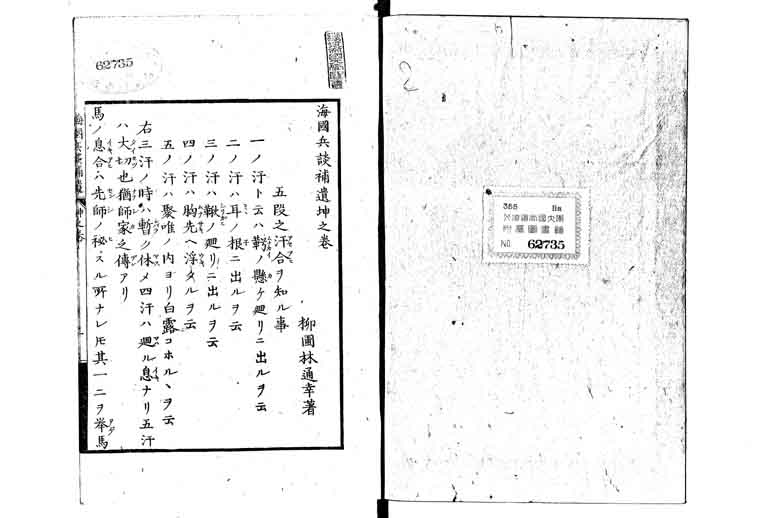 2
388 Ba
附属圖書館
No 62735
62735
海國兵談補遺坤之巻
柳圃林通幸著
五段之汗合ヲ知ル事
一ノ汗ト云ハ鞍ノ懸ケ廻リニ出ルヲ云
二ノ汗ハ耳ノ根ニ出ルヲ云
三ノ汗ハ鞦ノ廻リニ出ルヲ云
四ノ汗ハ胸先ヘ浮タルヲ云
五ノ汗ハ聚唯ノ内ヨリ白露コホルヽヲ云
右三汗ノ時ハ暫ク休メ四汗ハ廻ル息ナリ五汗
ハ大切也猶師家之傳アリ
馬ノ息合ハ先師ノ秘スル所ナレ𪜈其一二ヲ挙馬
坤之巻